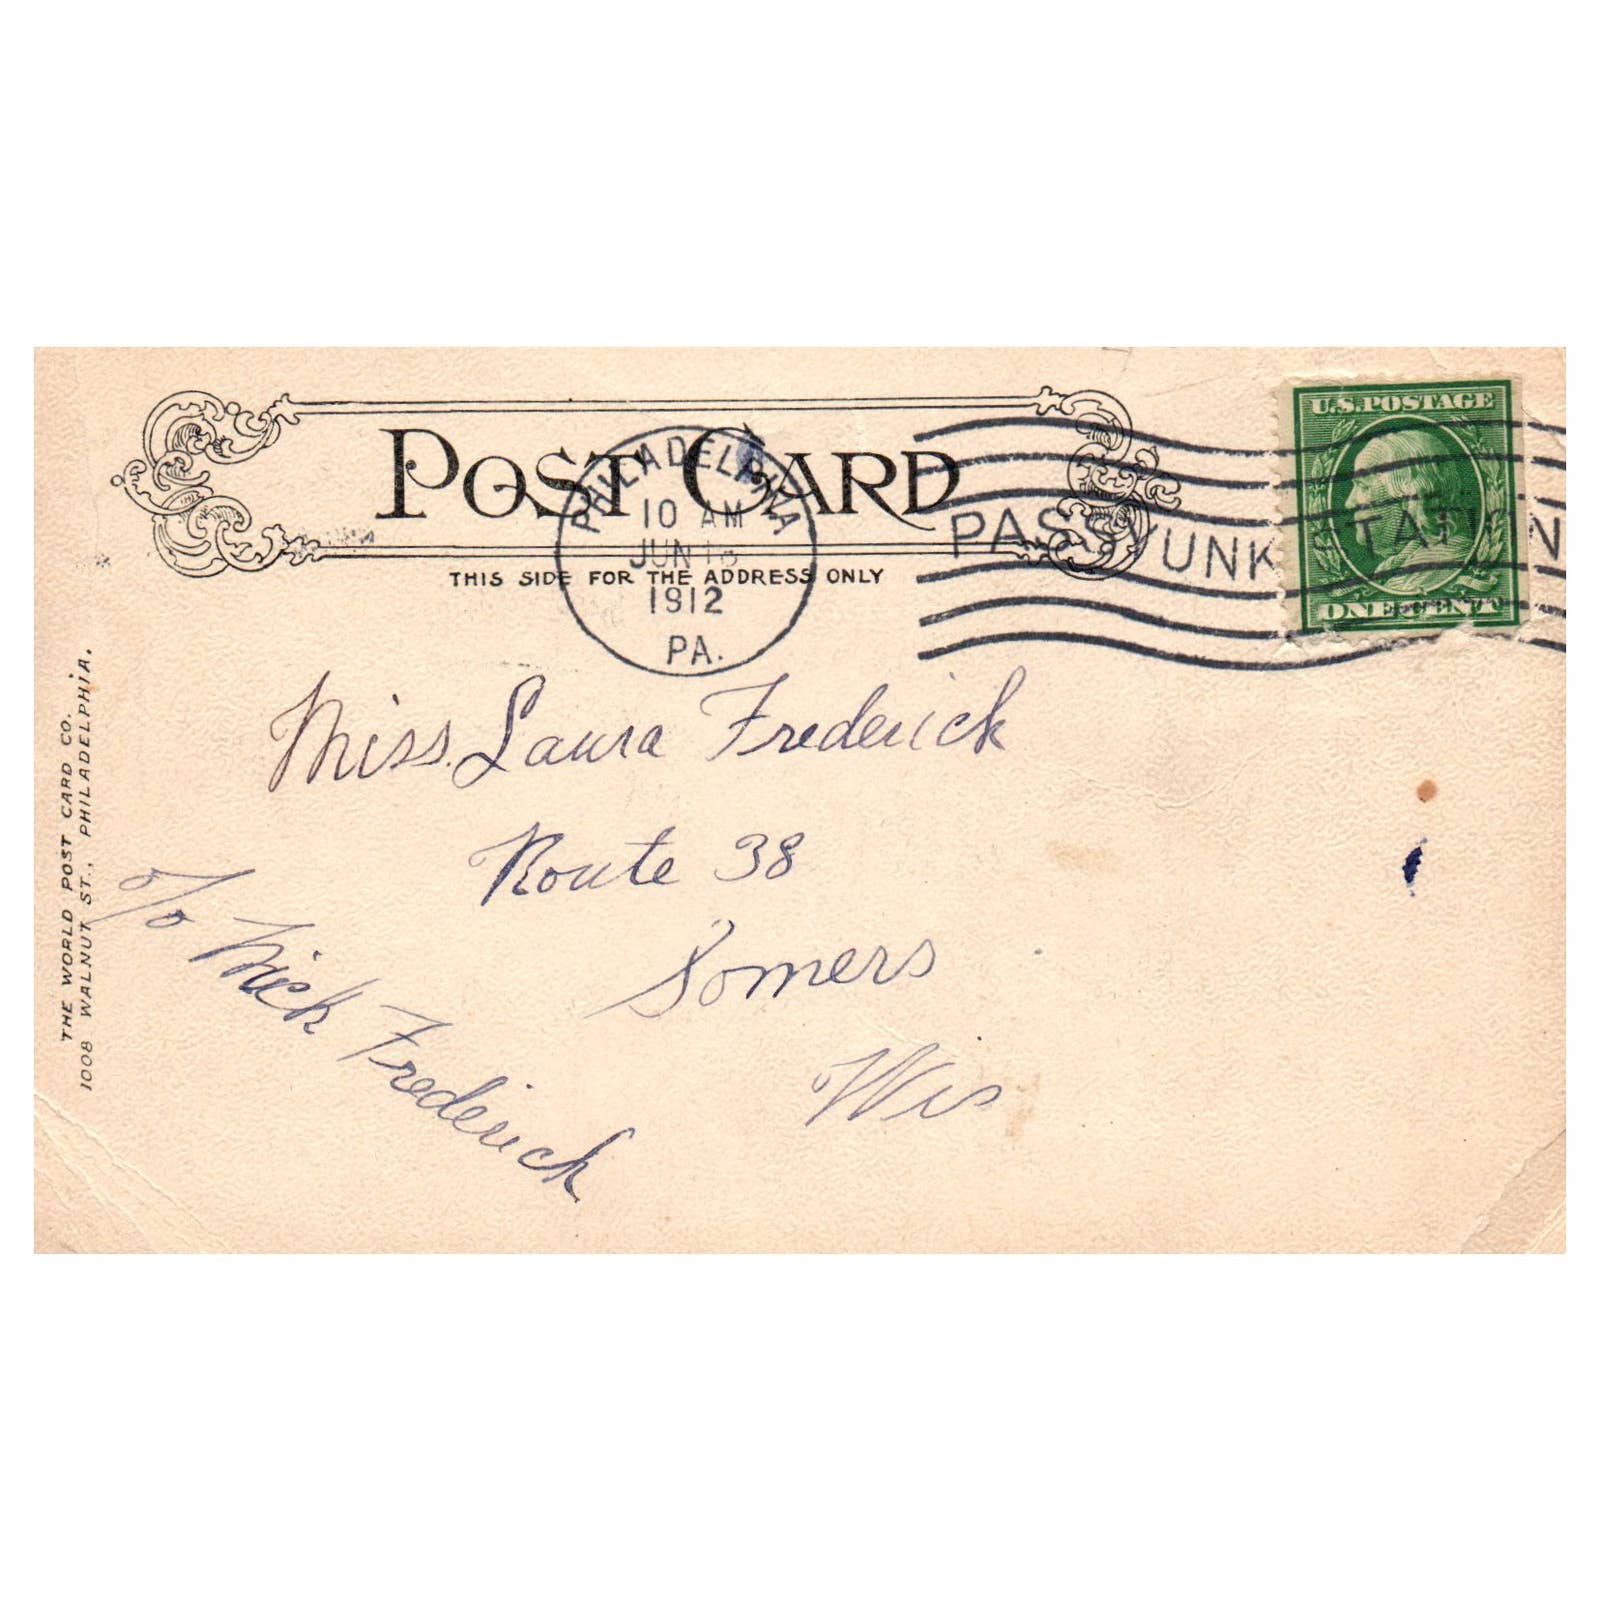 POST CARD
THIS SIDE FOR THE ADDRESS ONLY
PHILADELPHIA
10 AM
JUN
1912
PA.
PASSYUNK STATION
U.S. POSTAGE
ONE CENT
Miss. Laura Frederick
Route 38
Somers
Wis
c/o Nick Frederick
THE WORLD POST CARD CO.
1008 WALNUT ST., PHILADELPHIA.